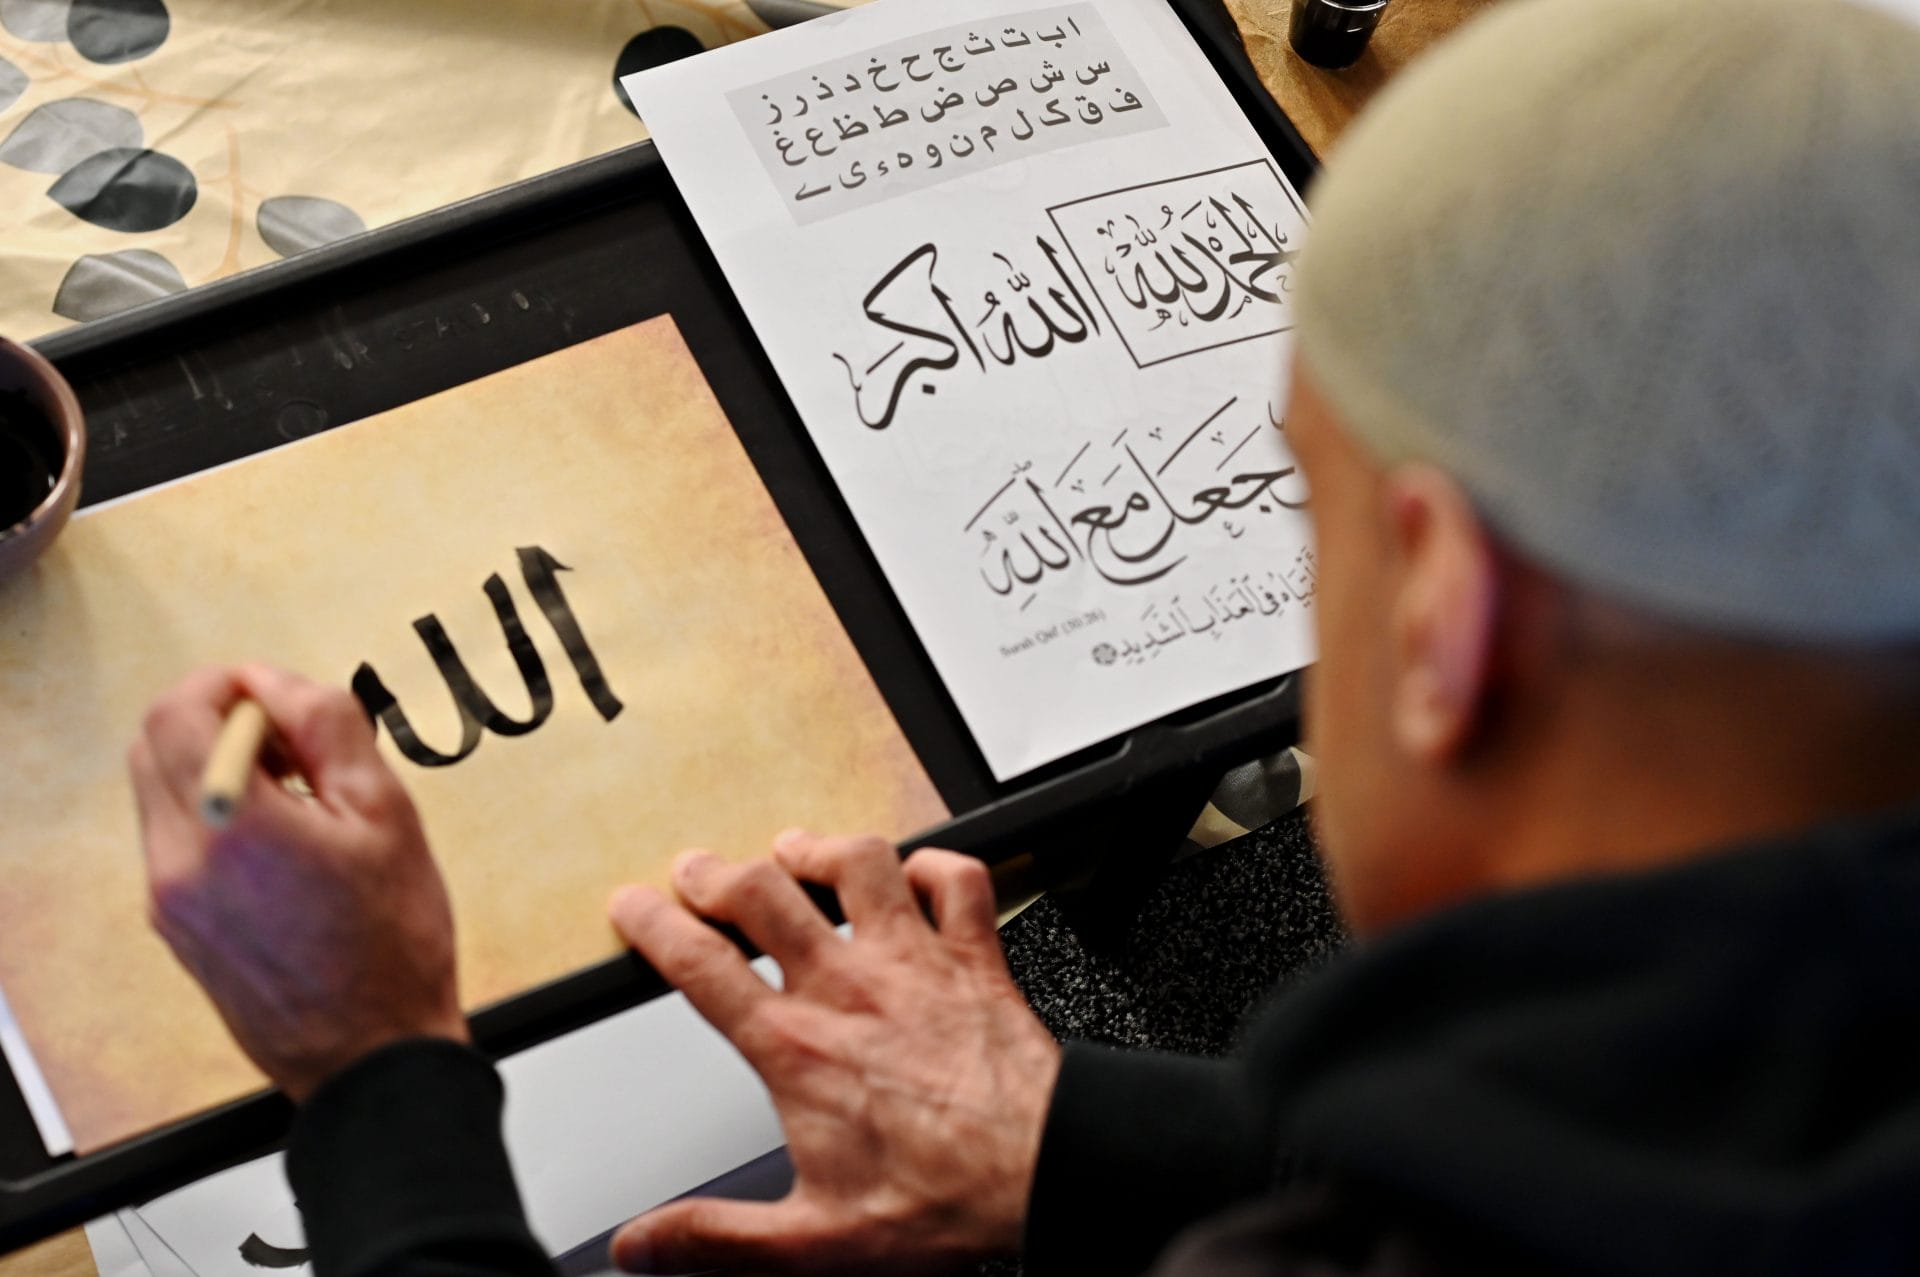 ا ب ت ث ج ح خ د ذ ر ز
س ش ص ض ط ظ ع غ
ف ق ک ل م ن و ه ء ی ے
الحمد لله
الله اكبر
جَعَلَ مَعَ ٱللَّهِ
فِى ٱلْعَذَابِ ٱلشَّدِيدِ
Surah Qaf (50:26)
الل